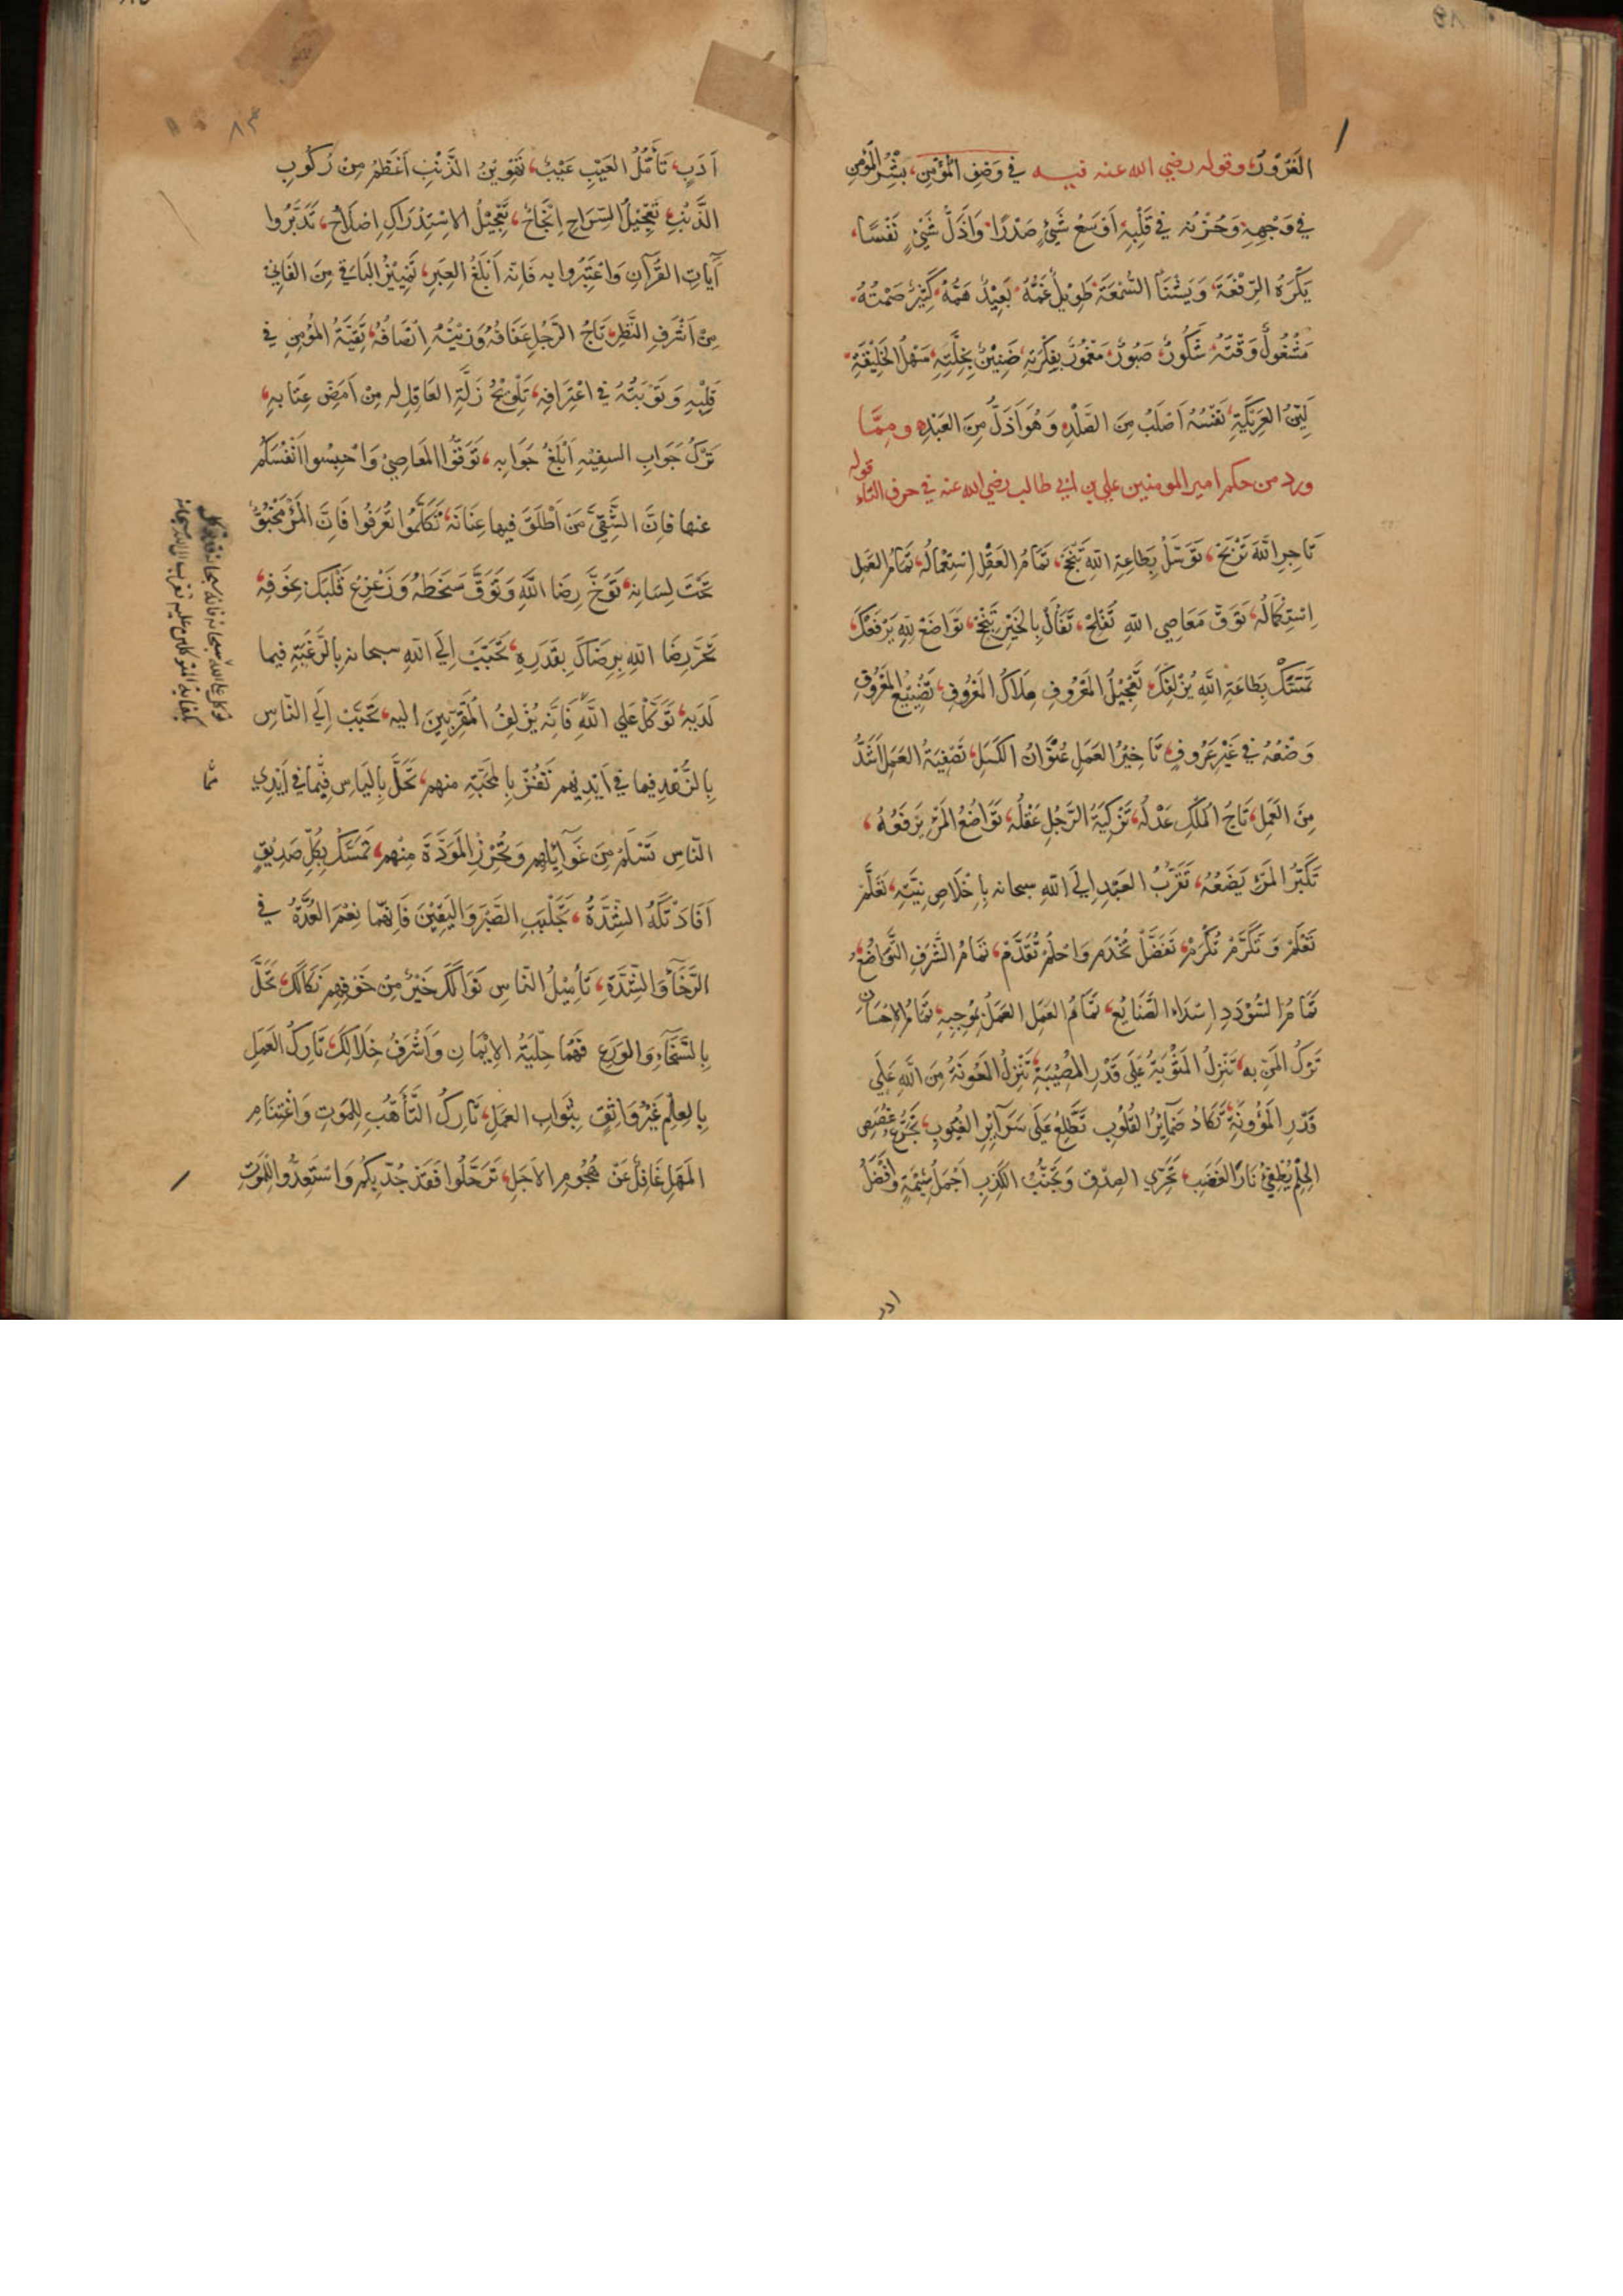 الغَرُورُ، وقوله رضي الله عنه فيه في وَصْفِ المُؤْمِنِ، بِشْرُ المُؤْمِنِ
في وَجْهِهِ، وَحُزْنُه في قَلْبِهِ، اَوْسَعُ شَيْءٍ صَدْرًا، وَاَذَلُّ شَيْءٍ نَفْسًا،
يَكْرَهُ الرِّفْعَةَ، وَيَشْنَأُ السُّمْعَةَ، طَوِيلٌ غَمُّهُ، بَعِيْدٌ هَمُّهُ، كَثِيْرٌ صَمْتُهُ،
مَشْغُولٌ وَقْتُهُ، شَكُورٌ، صَبُورٌ، مَغْمُورٌ بِفِكْرَتِهِ، ضَنِيْنٌ بِخُلَّتِهِ، سَهْلُ الخَلِيْقَةِ،
لَيِّنُ العَرِيْكَةِ، نَفْسُهُ اَصْلَبُ مِنَ الصَّلْدِ، وَهُوَ اَذَلُّ مِنَ العَبْدِ، ومِمَّا
ورد من حكم امير المومنين علي بن ابي طالب رضي الله عنه في حرف التاء قوله
تَاجِرِ اللهَ تَرْبَحْ، تَوَسَّلْ بِطَاعَةِ اللهِ تَنْجَحْ، تَمَامُ العَقْلِ اِسْتِعْمَالُهُ، تَمَامُ العَمَلِ
اِسْتِكْمَالُهُ، تَوَقَّ مَعَاصِي اللهِ تُفْلِحْ، تَفَأَّلْ بِالخَيْرِ تَنْجَحْ، تَوَاضَعْ لِلهِ يَرْفَعْكَ،
تَمَسَّكْ بِطَاعَةِ اللهِ يُزْلِفْكَ، تَعْجِيْلُ المَعْرُوفِ مِلَاكُ المَعْرُوفِ، تَضْيِيْعُ المَعْرُوفِ
وَضْعُهُ في غَيْرِ عَرُوفٍ، تَاخِيْرُ العَمَلِ عُنْوَانُ الكَسَلِ، تَصْفِيَةُ العَمَلِ اَشَدُّ
مِنَ العَمَلِ، تَاجُ المَلِكِ عَدْلُهُ، تَزْكِيَةُ الرَّجُلِ عَقْلُهُ، تَوَاضُعُ المَرْءِ يَرْفَعُهُ،
تَكَبُّرُ المَرْءِ يَضَعُهُ، تَقَرُّبُ العَبْدِ اِلَى اللهِ سبحانه بِاِخْلَاصِ نِيَّتِهِ، تَعَلَّمْ
تَعْلَمْ وَتَكَرَّمْ تُكْرَمْ، تَفَضَّلْ تُخْدَمْ وَاحْلُمْ تُقَدَّمْ، تَمَامُ الشَّرَفِ التَّوَاضُعُ،
تَمَامُ السُّوْدَدِ اِسْدَاءُ الصَّنَايِعِ، تَمَامُ العَمَلِ العَمَلُ بِمُوجِبِهِ، تَمَامُ الاِحْسَانِ
تَرْكُ المَنِّ به، تَنْزِلُ المَثُوْبَةُ عَلَى قَدْرِ المُصِيْبَةِ، تَنْزِلُ المَعُونَةُ مِنَ اللهِ عَلَى
قَدْرِ المَؤُونَةِ، تَكَادُ ضَمَآئِرُ القُلُوبِ تَطَّلِعُ عَلَى سَرَآئِرِ الغُيُوبِ، تَجَرُّعُ غُصَصِ
الحِلْمِ يُطْفِئُ نَارَ الغَضَبِ، تَحَرِّي الصِّدْقِ وَتَجَنُّبُ الكَذِبِ اَجْمَلُ شِيْمَةٍ وَاَفْضَلُ
ادب
٨٣
اَدَبٍ، تَأَمُّلُ العَيْبِ عَيْبٌ، تَهْوِيْنُ الذَّنْبِ اَعْظَمُ مِنْ رُكُوبِ
الذَّنْبِ، تَعْجِيْلُ السَّرَاحِ اِنْجَاحٌ، تَعْجِيْلُ الاِسْتِدْرَاكِ اِصْلَاحٌ، تَدَبَّرُوا
آيَاتِ القُرْآنِ وَاعْتَبِرُوا به فَاِنَّه اَبْلَغُ العِبَرِ، تَمْيِيْزُ البَاقِي مِنَ الفَانِي
مِنْ اَشْرَفِ النَّظَرِ، تَاجُ الرَّجُلِ عَفَافُهُ وَزِيْنَتُهُ اِنْصَافُهُ، تَقِيَّةُ المُؤْمِنِ في
قَلْبِهِ وَتَوْبَتُهُ في اعْتِرَافِهِ، تَلْوِيْحُ زَلَّةِ العَاقِلِ له مِنْ اَمَضِّ عِتَابِهِ،
تَرْكُ جَوَابِ السفِيْهِ اَبْلَغُ جَوَابِهِ، تَوَقَّوُا المَعَاصِيَ وَاحْبِسُوا اَنْفُسَكُم
عنها فَاِنَّ الشَّقِيَّ مَنْ اَطْلَقَ فيها عِنَانَهُ، تَكَلَّمُوا تُعْرَفُوا فَاِنَّ المَرْءَ مَخْبُوٌّ
تَحْتَ لِسَانِهِ، تَوَخَّ رِضَا اللهِ وَتَوَقَّ سَخَطَهُ وَزَعْزِعْ قَلْبَكَ بِخَوْفِهِ،
تَحَرَّ رِضَا اللهِ بِرِضَاكَ بِقَدَرِهِ، تَحَبَّبْ اِلَى اللهِ سبحانه بِالرَّغْبَةِ فيما
لَدَيهِ، تَوَكَّلْ عَلَى اللهِ فَاِنَّه يُزْلِفُ المُقَرَّبِيْنَ اليهِ، تَحَبَّبْ اِلَى النَّاسِ
بِالزُّهْدِ فيما في اَيْدِيهِم تَفُزْ بِالمَحَبَّةِ منهم، تَحَلَّ بِاليَاسِ مِمَّا في اَيْدِي
النَّاسِ تَسْلَمْ مِنْ غَوَآئِلِهِم وَتُحْرِزِ المَوَدَّةَ مِنْهُم، تَمَسَّكْ بِكُلِّ صَدِيْقٍ
اَفَادَتْكَهُ الشِّدَّةُ، تَجَلْبَبِ الصَّبْرَ وَاليَقِيْنَ فَاِنَّهُمَا نِعْمَ العُدَّةُ في
الرَّخَآءِ وَالشِّدَّةِ، تَأْمِيْلُ النَّاسِ نَوَالَكَ خَيْرٌ مِنْ خَوْفِهِم نَكَالَكَ، تَحَلَّ
بِالسَّخَآءِ وَالوَرَعِ فَهُمَا حِلْيَةُ الاِيْمَانِ وَاَشْرَفُ خِلَالِكَ، تَارِكُ العَمَلِ
بِالعِلْمِ غَيْرُ وَاثِقٍ بِثَوَابِ العَمَلِ، تَارِكُ التَّأَهُّبِ لِلمَوتِ وَاغْتِنَامِ
المَهَلِ غَافِلٌ عَنْ هُجُومِ الاَجَلِ، تَرَحَّلُوا فَقَدْ جُدَّ بِكُم وَاسْتَعِدُّوا لِلمَوتِ
توكل على الله سبحانه فانه